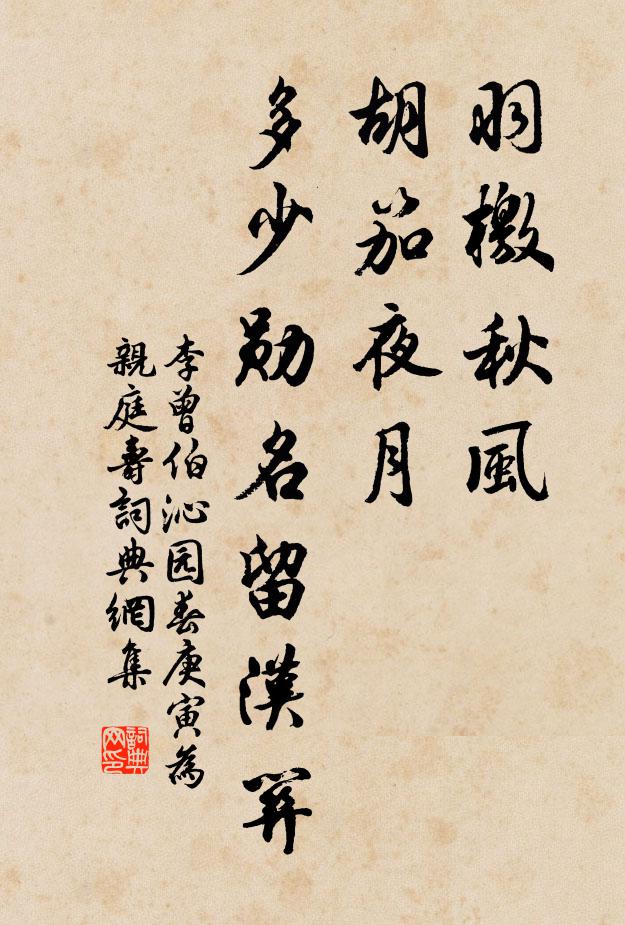 羽檄秋風
胡笳夜月
多少勛名留漢關
李曾伯沁园春庚寅為
親庭壽詞典網集
詞典
网印